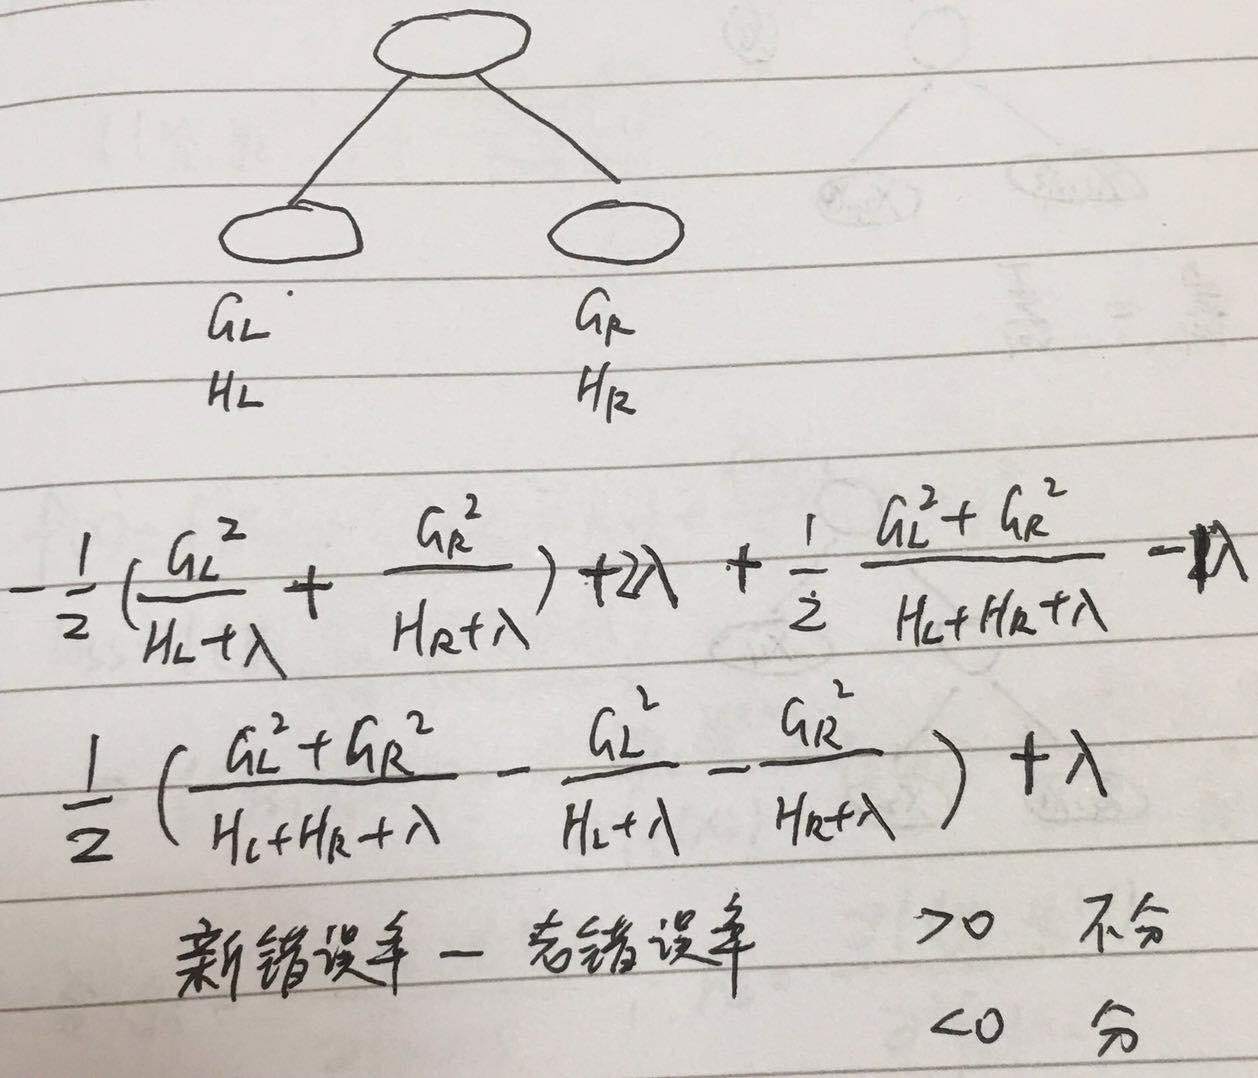 G_L G_R
H_L H_R
-\frac{1}{2}(\frac{G_L^2}{H_L+λ} + \frac{G_R^2}{H_R+λ}) + 2λ + \frac{1}{2} \frac{G_L^2+G_R^2}{H_L+H_R+λ} - 1λ
\frac{1}{2}(\frac{G_L^2+G_R^2}{H_L+H_R+λ} - \frac{G_L^2}{H_L+λ} - \frac{G_R^2}{H_R+λ}) + λ
新错误率 - 老错误率 >0 不分
<0 分